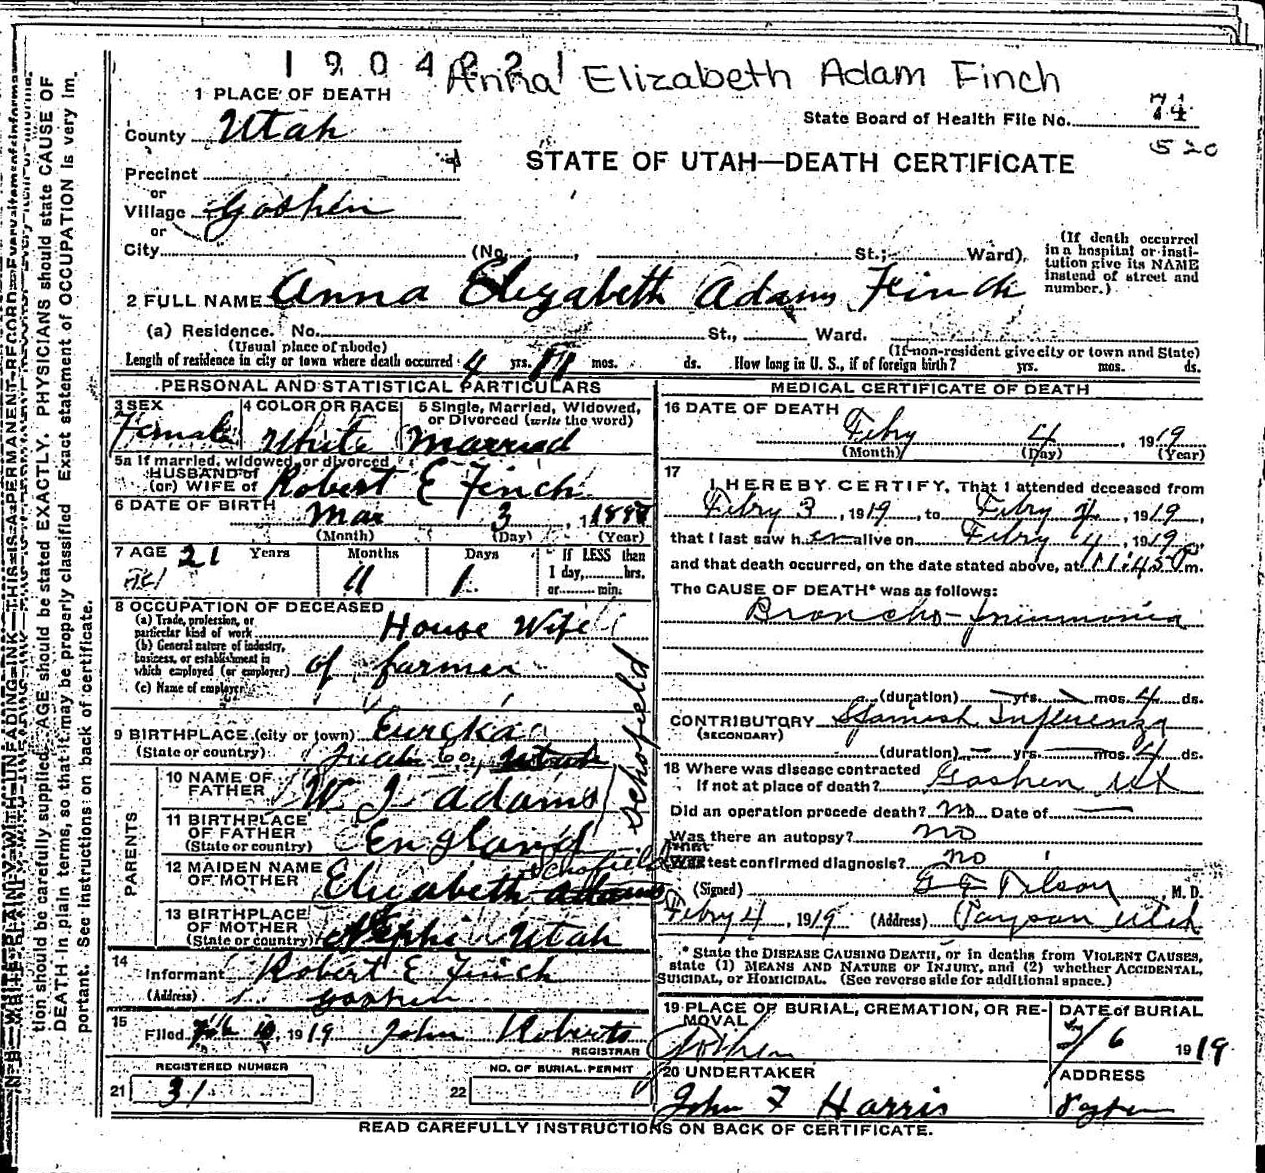 1904221
Anna Elizabeth Adam Finch
1 PLACE OF DEATH
County Utah
State Board of Health File No. 74
520
STATE OF UTAH—DEATH CERTIFICATE
Precinct
or
Village Goshen
or
City (No. , St.; Ward)
(If death occurred in a hospital or institution give its NAME instead of street and number.)
2 FULL NAME Anna Elizabeth Adams Finch
(a) Residence. No. St., Ward.
(Usual place of abode) (If non-resident give city or town and State)
Length of residence in city or town where death occurred 4 yrs. 11 mos. ds. How long in U. S., if of foreign birth? yrs. mos. ds.
PERSONAL AND STATISTICAL PARTICULARS
3 SEX Female
4 COLOR OR RACE White
5 Single, Married, Widowed, or Divorced (write the word) Married
5a If married, widowed, or divorced
HUSBAND of
(or) WIFE of Robert E Finch
6 DATE OF BIRTH Mar 3, 1
(Month) (Day) (Year)
7 AGE 21 Years 11 Months 1 Days If LESS than 1 day, hrs. or min.
8 OCCUPATION OF DECEASED
(a) Trade, profession, or particular kind of work House Wife
(b) General nature of industry, business, or establishment in which employed (or employer) of farmer
(c) Name of employer
9 BIRTHPLACE (city or town) Eureka
(State or country) Juab Co, Utah
PARENTS
10 NAME OF FATHER W J Adams
11 BIRTHPLACE OF FATHER (State or country) England
12 MAIDEN NAME OF MOTHER Elizabeth Adams Schofield
Schofield
13 BIRTHPLACE OF MOTHER (State or country) Nephi Utah
14 Informant Robert E Finch
(Address) Goshen
15 Filed Feb 10, 1919 John Roberts
REGISTRAR
REGISTERED NUMBER
21 31
NO. OF BURIAL PERMIT
22
MEDICAL CERTIFICATE OF DEATH
16 DATE OF DEATH Febry 4, 1919
(Month) (Day) (Year)
17 I HEREBY CERTIFY, That I attended deceased from
Febry 3, 1919, to Febry 4, 1919,
that I last saw her alive on Febry 4, 1919,
and that death occurred, on the date stated above, at 11:45 P m.
The CAUSE OF DEATH* was as follows:
Broncho-pneumonia
(duration) yrs. mos. 4 ds.
CONTRIBUTORY Spanish Influenza
(SECONDARY)
(duration) yrs. mos. 4 ds.
18 Where was disease contracted
If not at place of death? Goshen Ut
Did an operation precede death? no Date of
Was there an autopsy? no
What test confirmed diagnosis? no
(Signed) M. D.
Febry 4, 1919 (Address) Payson Utah
* State the DISEASE CAUSING DEATH, or in deaths from VIOLENT CAUSES, state (1) MEANS AND NATURE OF INJURY, and (2) whether ACCIDENTAL, SUICIDAL, or HOMICIDAL. (See reverse side for additional space.)
19 PLACE OF BURIAL, CREMATION, OR REMOVAL Goshen
DATE of BURIAL 2/6 1919
20 UNDERTAKER John F Harris
ADDRESS
READ CAREFULLY INSTRUCTIONS ON BACK OF CERTIFICATE.
N. B.—WRITE PLAINLY WITH UNFADING INK—THIS IS A PERMANENT RECORD.
tion should be carefully supplied. AGE should be stated EXACTLY. PHYSICIANS should state CAUSE OF
DEATH in plain terms, so that it may be properly classified. Exact statement of OCCUPATION is very im-
portant. See instructions on back of certificate.